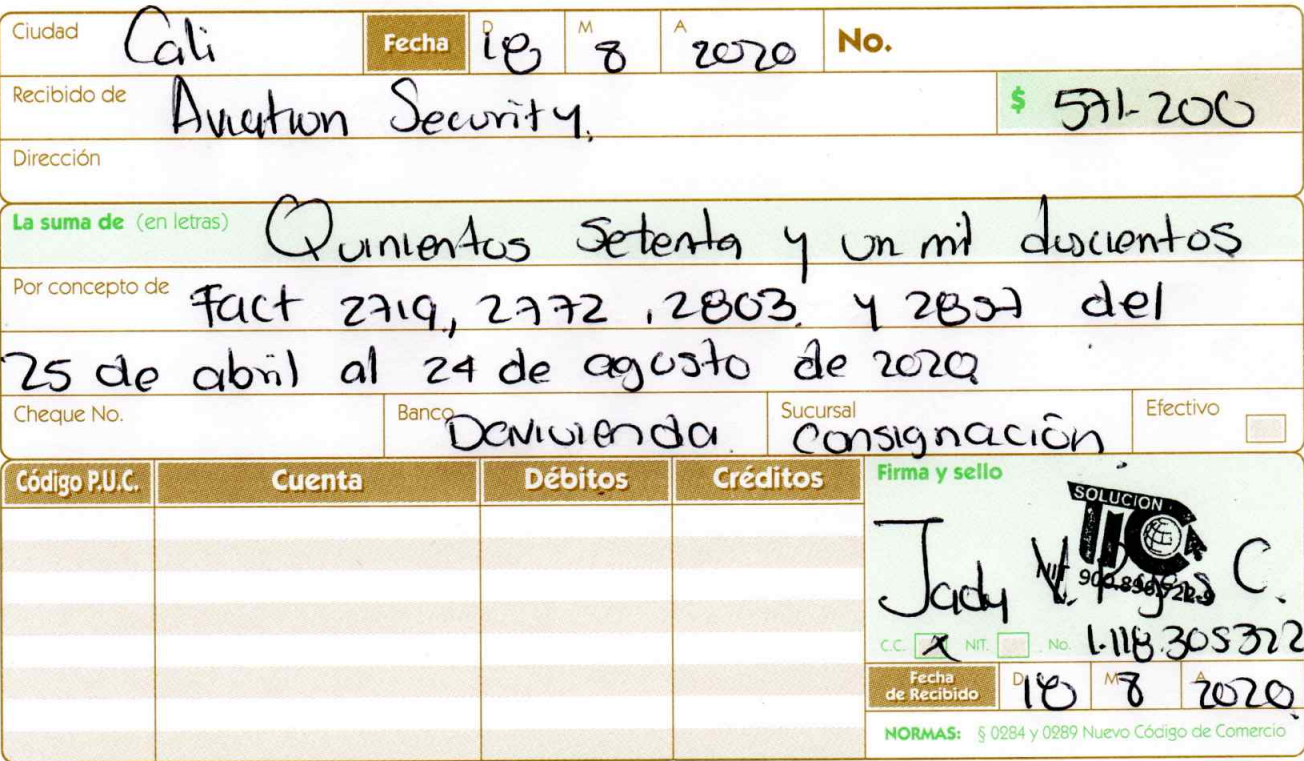 Ciudad Cali Fecha D 18 M 8 A 2020 No.
Recibido de Aviation Security. $ 571.200
Dirección
La suma de (en letras) Quinientos Setenta y un mil doscientos
Por concepto de Fact 2719, 2772, 2803 y 2857 del
25 de abril al 24 de agosto de 2020
Cheque No. Banco Davivienda Sucursal Consignación Efectivo
Código P.U.C. Cuenta Débitos Créditos Firma y sello
SOLUCION
TIC
NIT 900.896.722-9
Jady V. C.
C.C. X NIT. No. 1.118.305322
Fecha de Recibido D 18 M 8 A 2020
NORMAS: § 0284 y 0289 Nuevo Código de Comercio